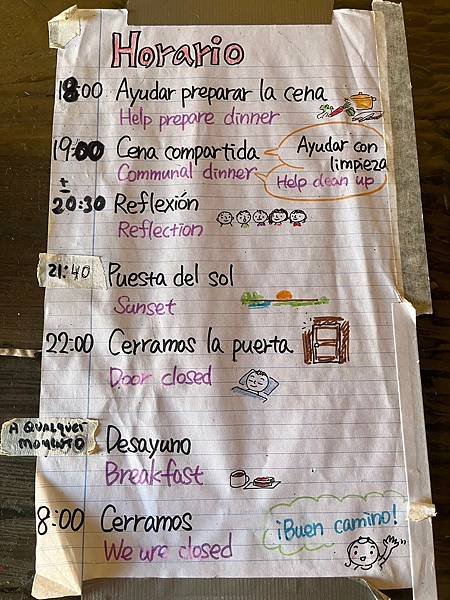 Horario
18:00 Ayudar preparar la cena
Help prepare dinner
19:00 Cena compartida
Communal dinner
Ayudar con
limpieza
Help clean up
±
20:30 Reflexión
Reflection
21:40 Puesta del sol
Sunset
22:00 Cerramos la puerta
Door closed
A QUALQUER
MOMENTO
Desayuno
Breakfast
8:00 Cerramos
We are closed
¡Buen camino!